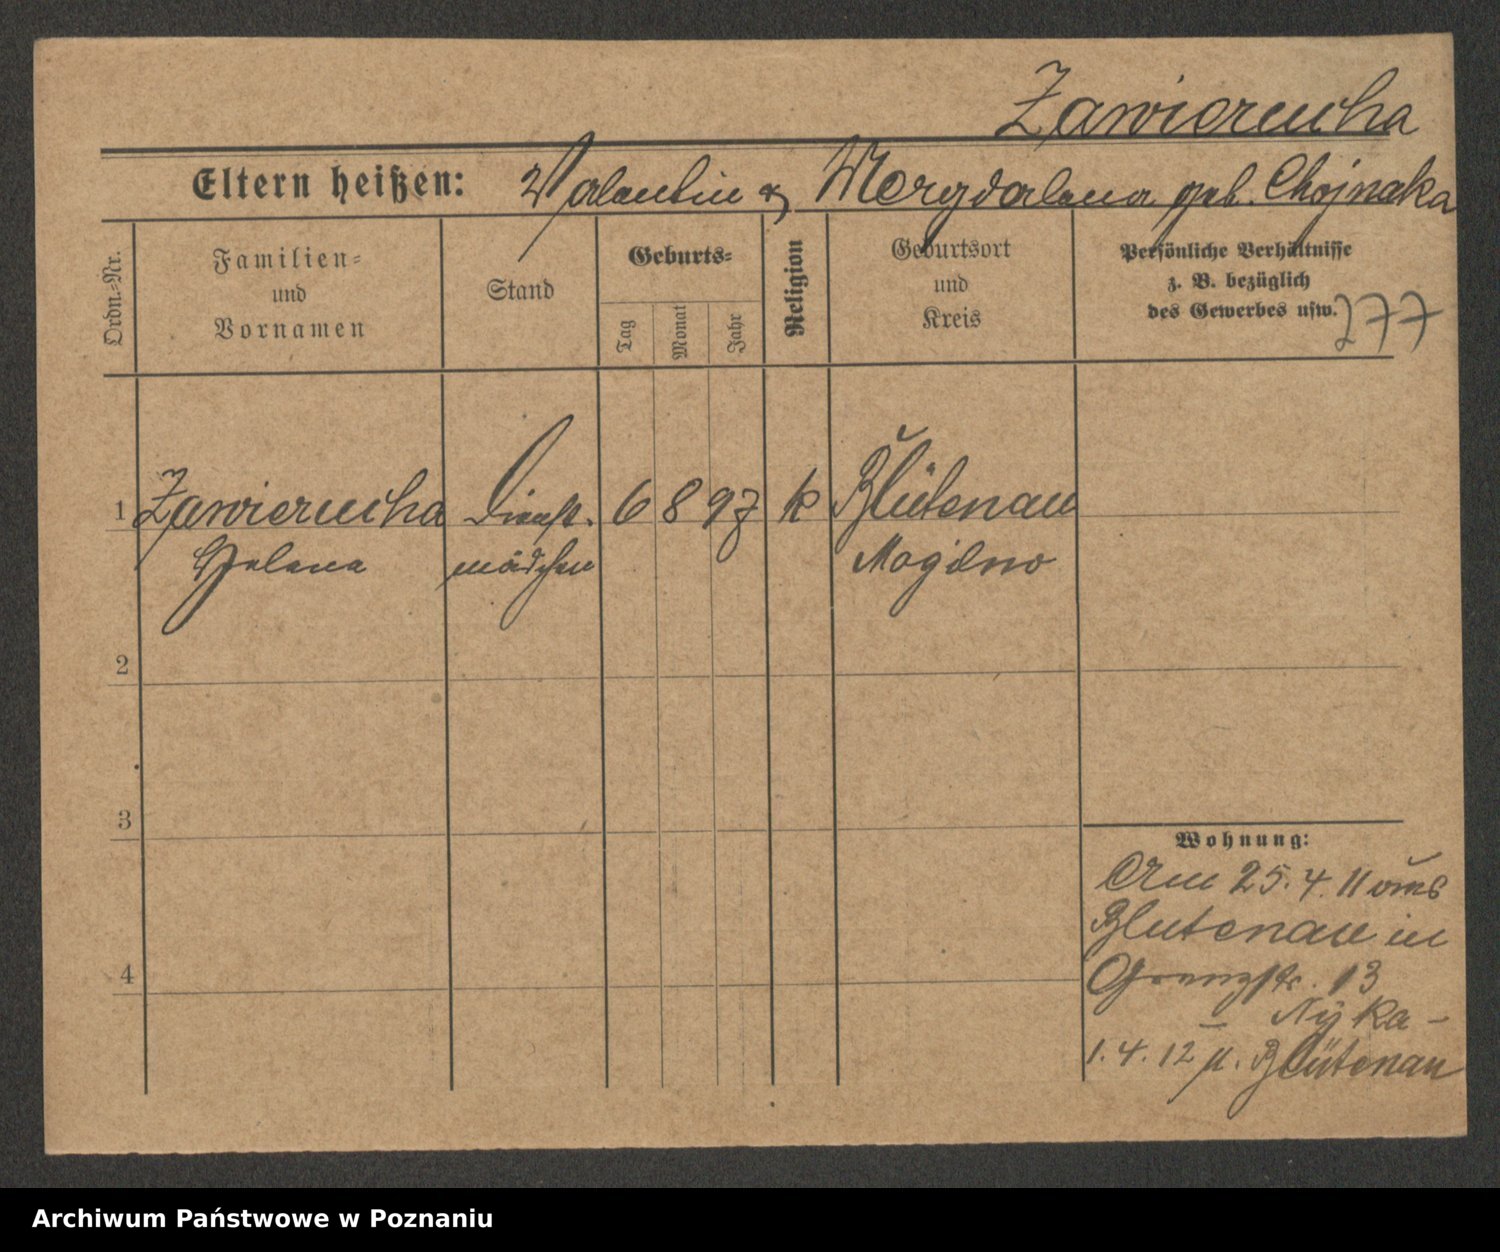 Zawierucha
Eltern heißen: Valentin & Magdalena geb. Chojnaka
Ordn.-Nr.
Familien-
und
Vornamen
Stand
Geburts-
Tag
Monat
Jahr
Religion
Geburtsort
und
Kreis
Persönliche Verhältnisse
z. B. bezüglich
des Gewerbes usw.
277
1 Zawierucha Dienst- 6 8 97 k Blütenau
Helena mädchen Mogilno
2
3
4
Wohnung:
Am 25. 4. 11 aus
Blutenau in
Grenzstr. 13
1. 4. 12 n. Blütenau
Archiwum Państwowe w Poznaniu